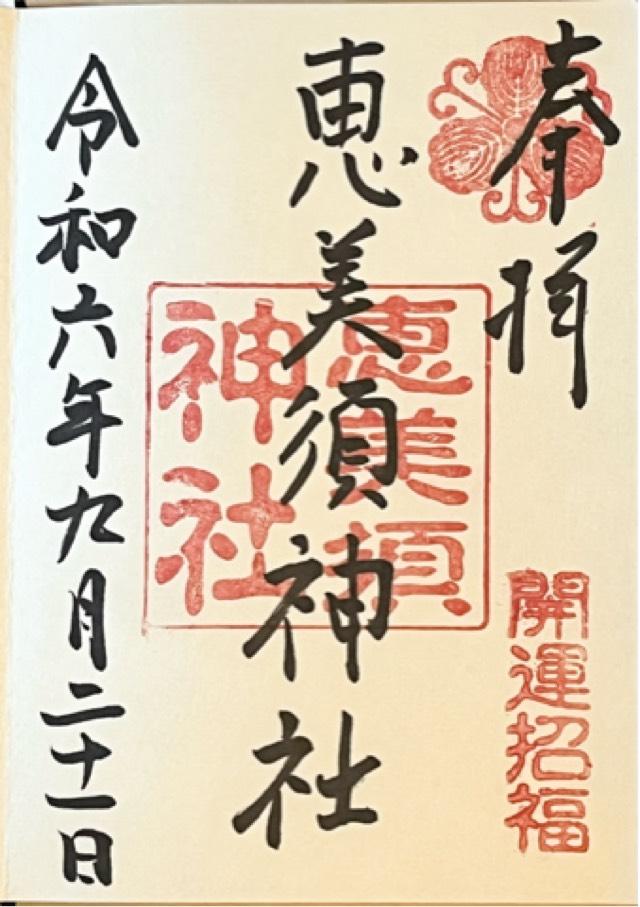 奉拝
開運招福
恵美須神社
恵美須
神社
令和六年九月二十一日